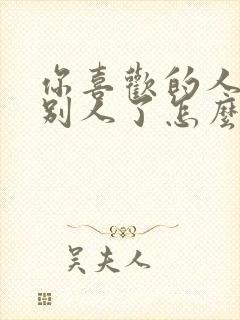 你喜歡的人
別人了怎麼
吳夫人